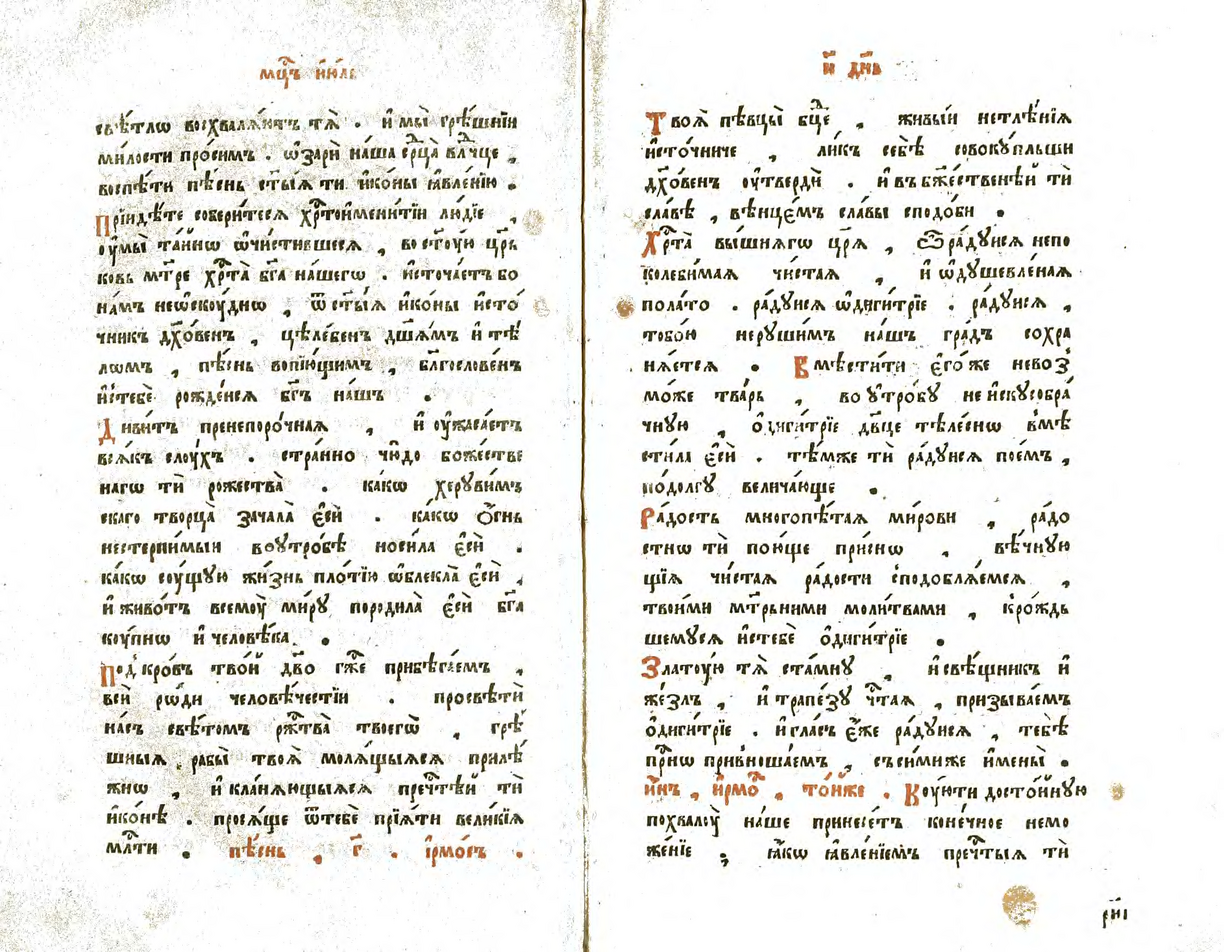 мц҃ъ і҆ю́лъ
свѣ́тлѡ восхваля́ютъ тѧ̀ . и҆ мы̀ грѣ́шнїи
ми́лости про́симъ . ѡ҆зарѝ на́ша се́рⷣца влⷣчце ,
воспѣ́ти пѣ́снь ст҃ы́ѧ тѝ и҆ко́ны ꙗ҆вле́нїю .
Прїидѣ́те собери́тесѧ хрⷭ҇тоимени́тїи лю́дїе ,
оу҆мы̀ та́йнѡ ѡ҆чи́стившесѧ , во ст҃у́ю цр҃ь
ковь мт҃ре хрⷭ҇та̀ бг҃а на́шегѡ . и҆сточа́етъ бо
на́мъ неѡску́днѡ , ѿ ст҃ы́ѧ и҆ко́ны и҆сто́
чникъ дх҃о́венъ , цѣле́бенъ дш҃а́мъ и҆ тѣ
лѡ́мъ , пѣ́снь вопїю́щимъ , бл҃гослове́нъ
и҆с тебѐ рожде́нсѧ бг҃ъ на́шъ .
Диви́тъ пренепоро́чнаѧ , и҆ оу҆жаса́етъ
всѧ́къ слоу́хъ . стра́нно чю́до боже́стве
наго ти̏ рожества̀ . ка́кѡ херуви́мъ
скаго творца̀ зачала̀ є҆сѝ . ка́кѡ ѻ҆́гнь
нестерпи́мыи во оу҆тро́бѣ носи́ла є҆сѝ .
ка́кѡ соу́щую жи́знь пло́тїю ѡ҆блекла̀ є҆сѝ ,
и҆ живо́тъ всемоу̀ ми́ру породи́ла є҆сѝ бг҃а
коу́пнѡ и҆ человѣ́ка .
Под̾ кро́въ тво́й дв҃о гжⷭ҇е прибѣга́емъ ,
всѝ рѡ́ди человѣ́честїи . просвѣтѝ
на́съ свѣ́томъ ржⷭ҇тва̀ твоегѡ̀ , грѣ́
шныѧ рабы̀ твоѧ̀ молѧ́щыѧсѧ прилѣ́
жнѡ , и҆ кла́нѧющыѧсѧ пречⷭ҇тѣй тѝ
и҆ко́нѣ . просѧ́ще ѿ тебѐ прїѧ́ти вели́кїѧ
млⷭ҇ти . пѣ́снь , г҃ . і҆рмо́съ .
и҃ дн҃ь
Твоѧ̀ пѣвцы̀ бц҃е , живы́и нетлѣ́нїѧ
и҆сто́чниче , ли́къ себѣ̀ совокупльши
дх҃о́венъ оу҆твердѝ . и҆ въ бж҃е́ственѣй тѝ
сла́вѣ , вѣнце́мъ сла́вы сподо́би .
Хрⷭ҇та̀ вы́шнѧгѡ цр҃ѧ̀ , ѻ҆тра́дуисѧ непо
колеби́маѧ чи́стаѧ , и҆ ѡ҆душевле́наѧ
пола́то . ра́дуисѧ ѡ҆диги́трїе . ра́дуисѧ ,
тобо́ю неруши́мъ на́шъ гра́дъ сохра
нѧ́етсѧ . Вмѣсти́ти є҆го́же невоз̾
мо́же тва́рь , во оу҆тро́бу неискусобра́
чную , ѻ҆диги́трїе дв҃це тѣле́снѡ вмѣ
сти́ла є҆сѝ . тѣ́мже тѝ ра́дуисѧ пое́мъ ,
по до́лгу велича́юще .
Ра́дость многопѣ́таѧ ми́рови , ра́до
стнѡ тѝ пою́ще при́снѡ , вѣ́чную
щїѧ чи́стаѧ ра́дости сподоблѧ́емсѧ ,
твои́ми мт҃рьними моли́твами , к̾ро́ждь
шемусѧ и҆с тебѐ ѻ҆диги́трїе .
Злату́ю тѧ̀ ста́мну , и҆ свѣ́щникъ и҆
же́злъ , и҆ трапе́зу чⷭ҇таѧ , призыва́емъ
ѻ҆диги́трїе . и҆ гла́съ є҆́же ра́дуисѧ , тебѣ̀
прⷭ҇нѡ привноша́емъ , съ си́миже и҆́мены .
и҆́нъ , і҆рмо́ⷭ , то́йже . Коую́ти досто́йную
похвалоу̀ на́ше принесе́тъ коне́чное немо
же́нїе ; ꙗ҆́кѡ ꙗ҆вле́нїемъ пречⷭ҇тыѧ тѝ
рн҃і